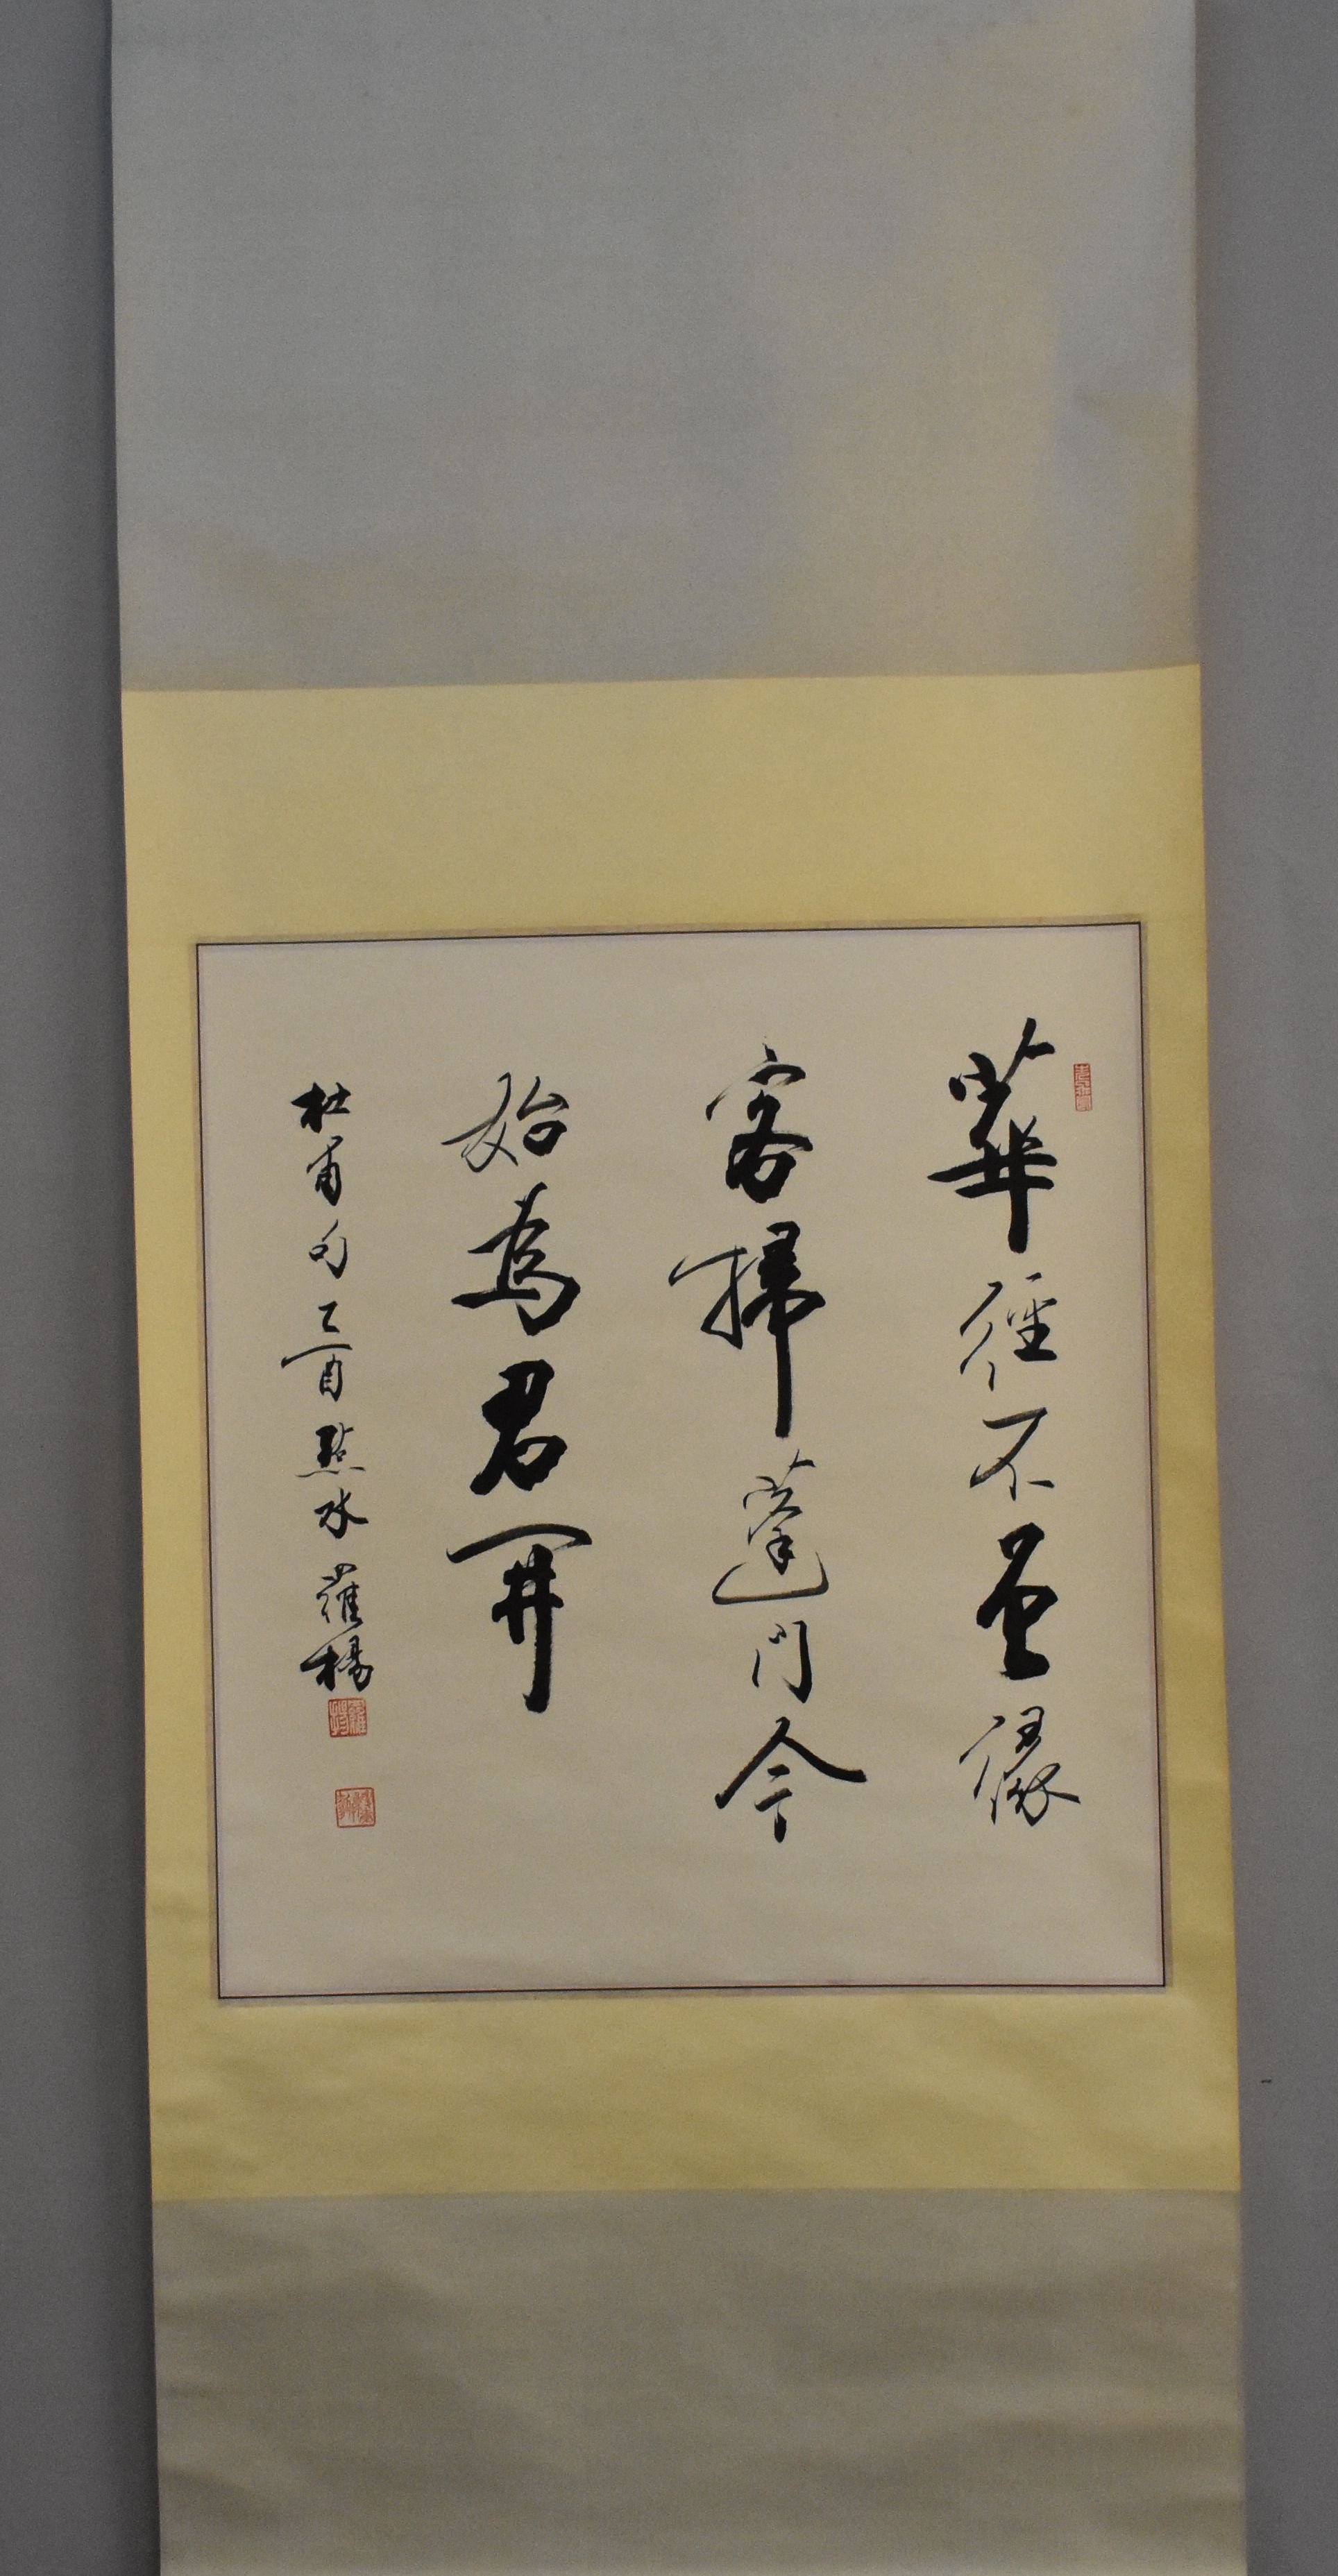 華徑不曾緣
客掃蓬門今
始為君開
杜甫句乙酉點水羅楊
羅楊